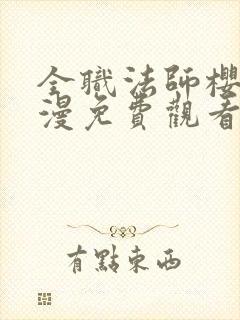 全職法師櫻
漫免費觀看
有點東西